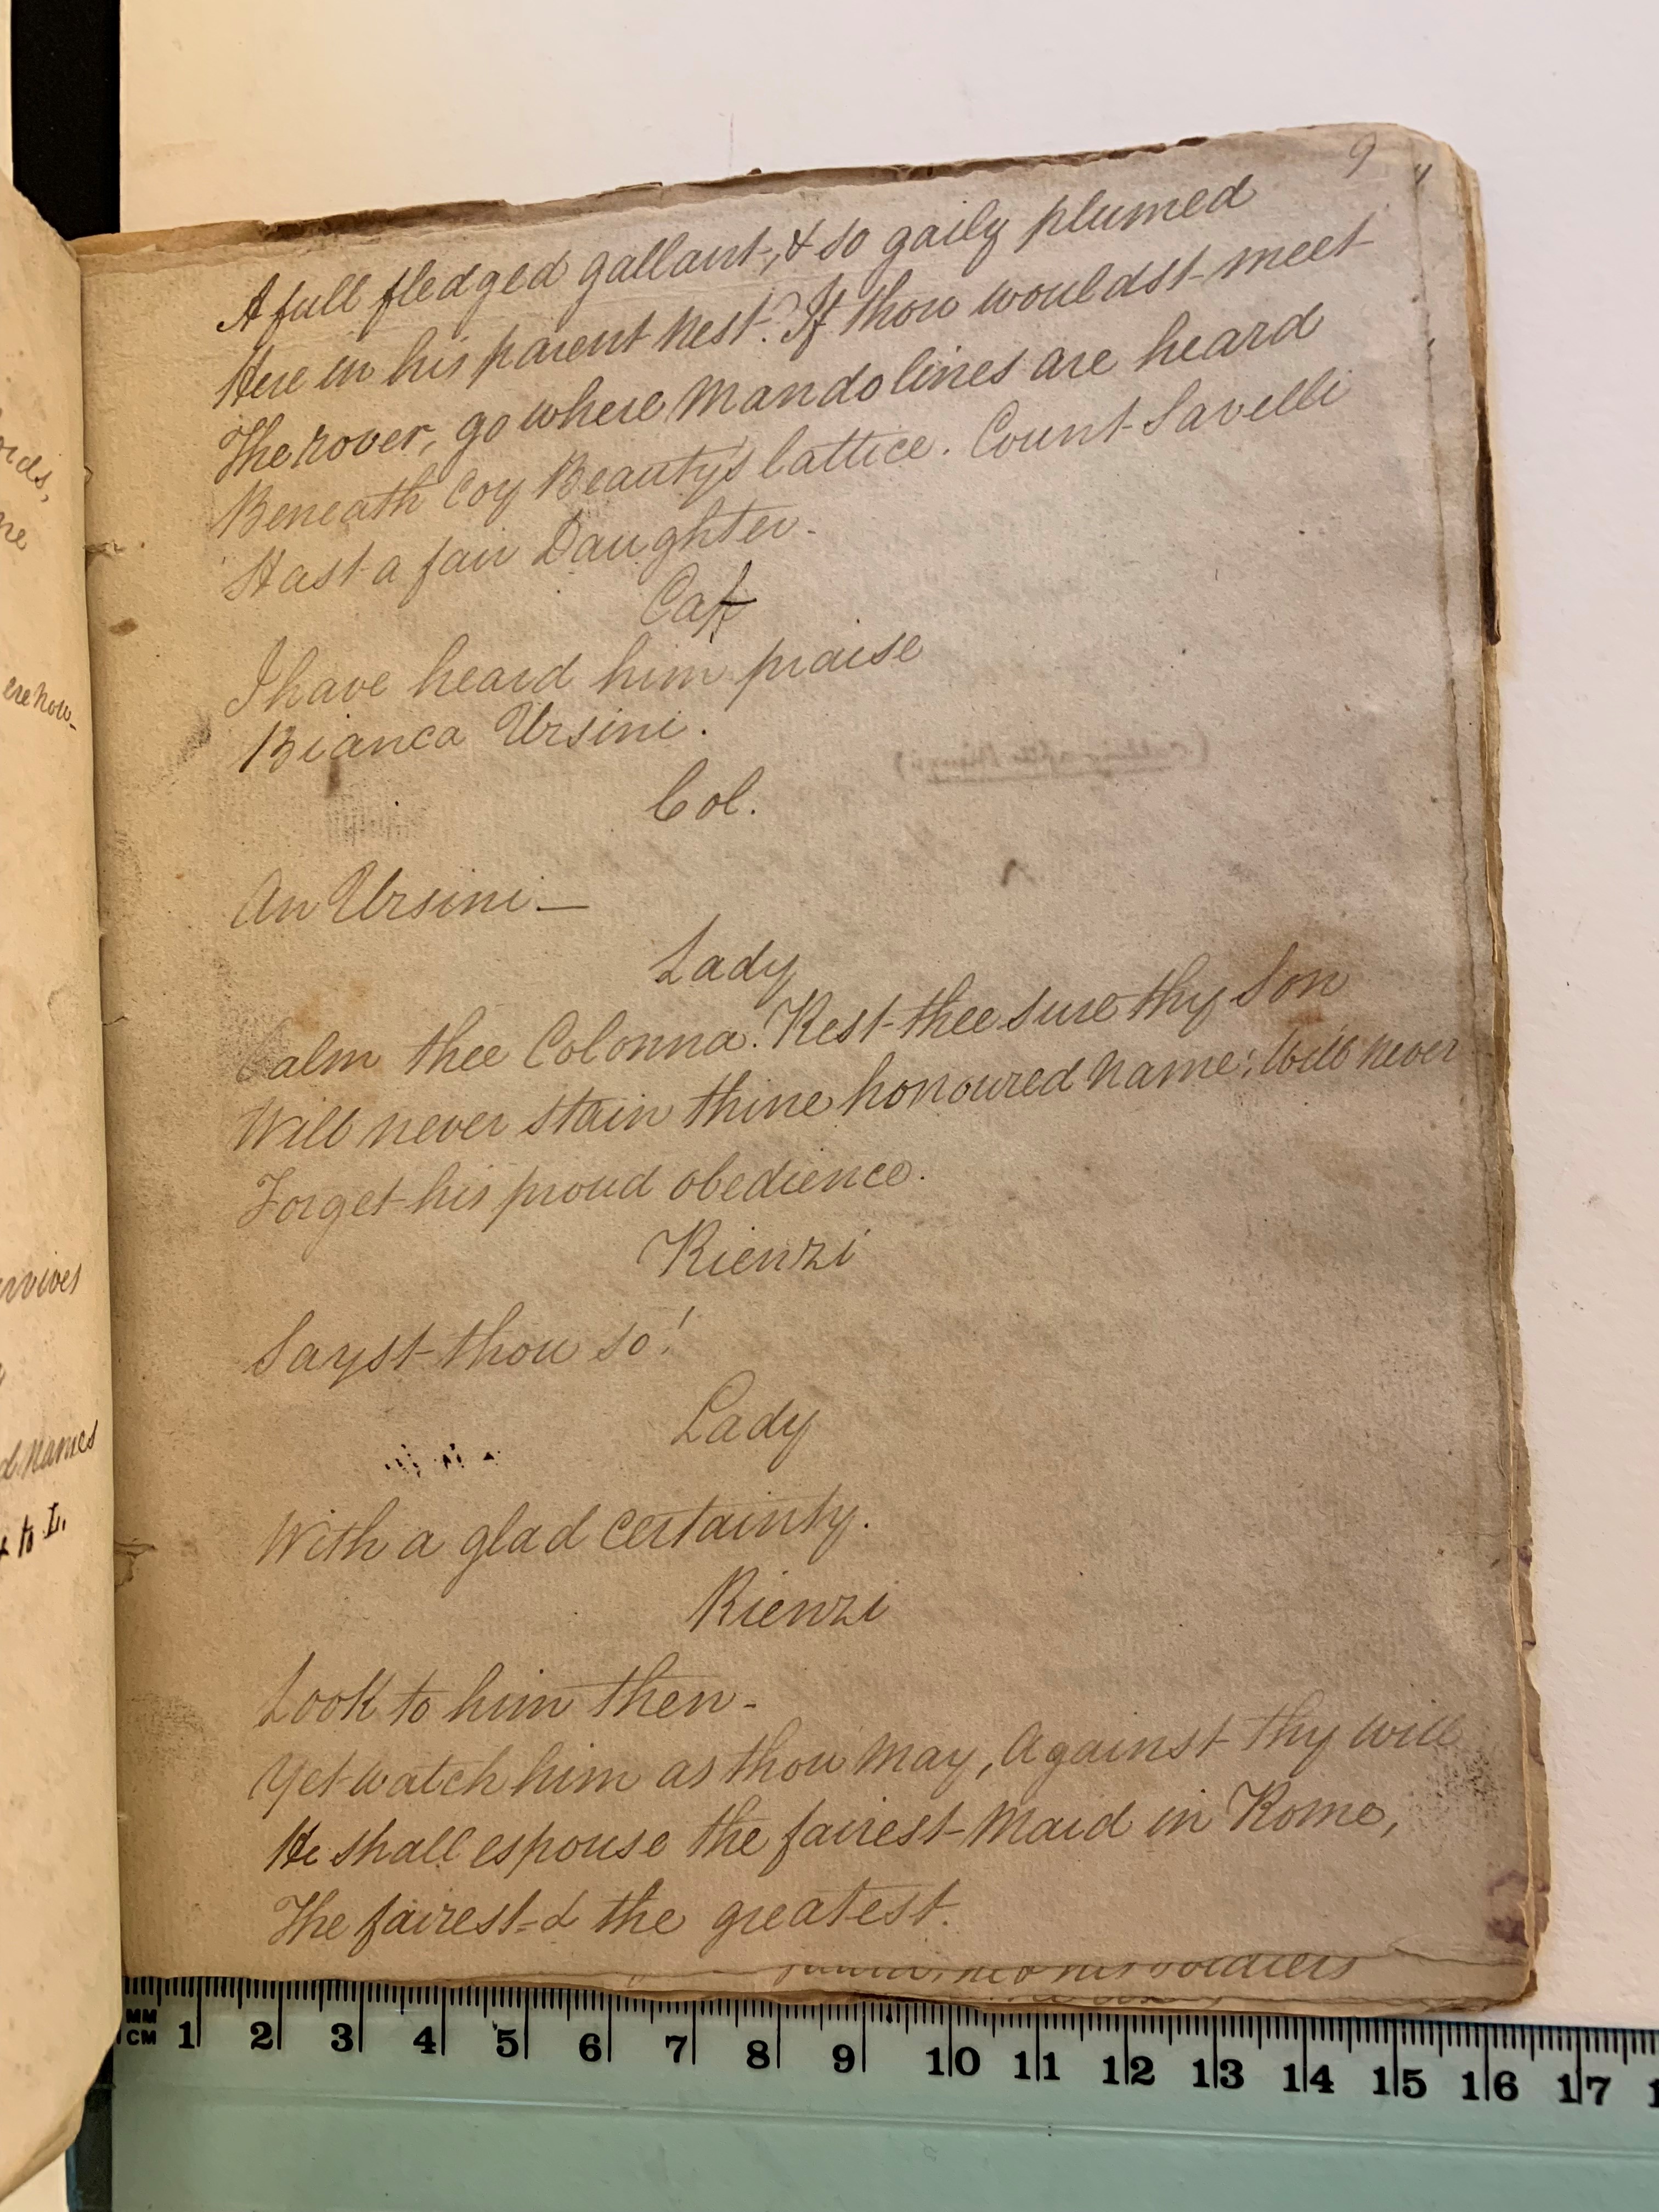 9
A full fledged gallant, & so gaily plumed
Here in his parent nest? If thou wouldst meet
The rover, go where Mandolines are heard
Beneath Coy Beauty's lattice. Count Savelli
Hast a fair Daughter.
Caf
I have heard him praise
Bianca Ursini.
Col.
An Ursini —
Lady
Calm thee Colonna. Rest thee sure thy Son
Will never stain thine honoured name; Will never
Forget his proud obedience.
Rienzi
Sayst thou so!
Lady
With a glad certainty.
Rienzi
Look to him then -
Yet watch him as thou may, Against thy will
He shall espouse the fairest Maid in Rome,
The fairest & the greatest.
soldiers
ere now_
d names
to L.
MM
CM 1 2 3 4 5 6 7 8 9 10 11 12 13 14 15 16 17